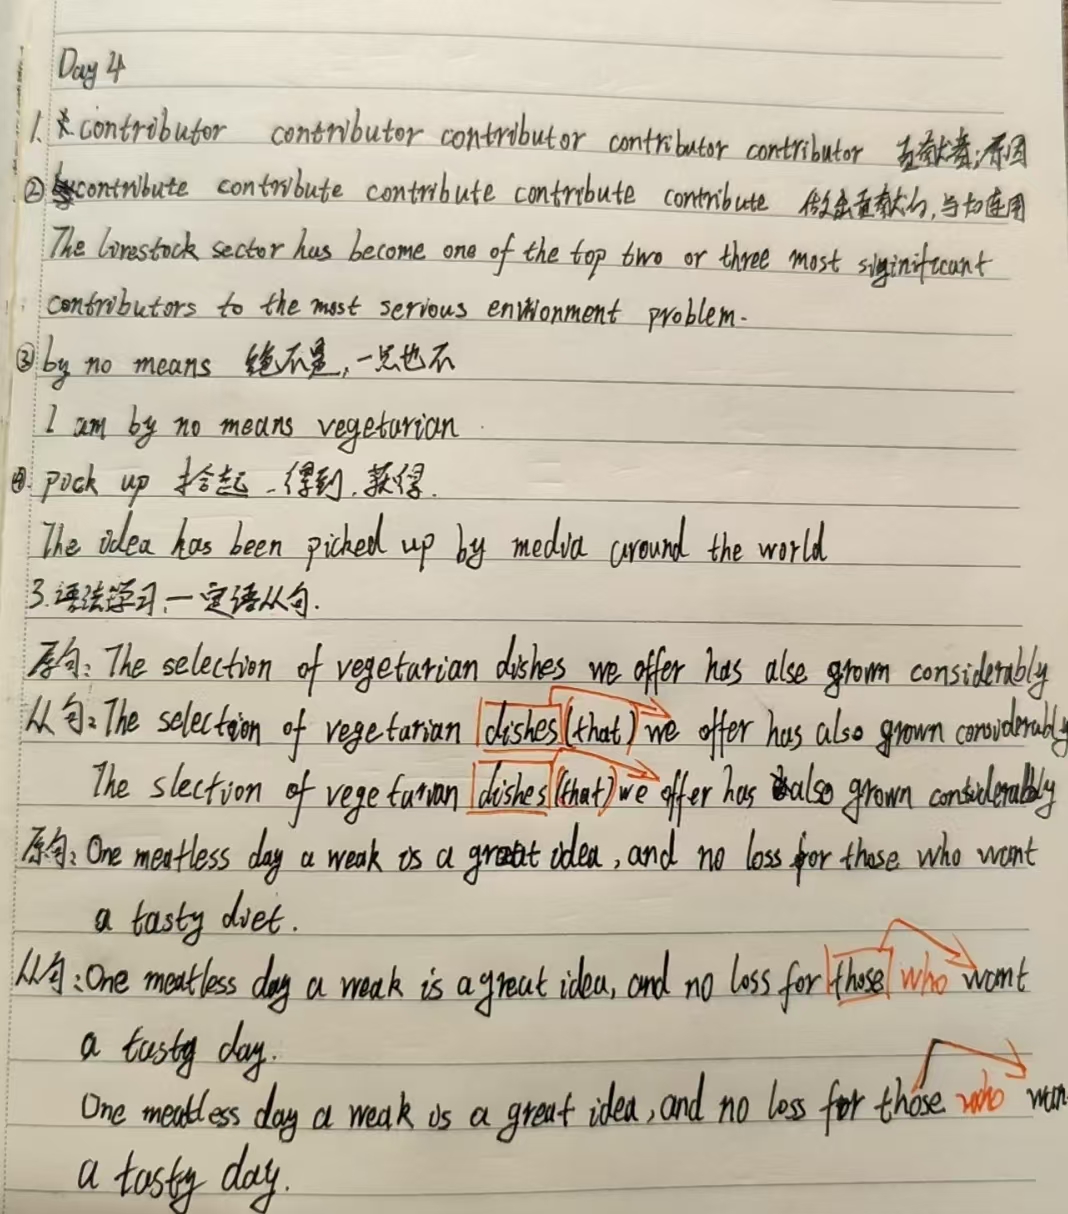 Day 4
1. contributor contributor contributor contributor contributor 贡献者;原因
② contribute contribute contribute contribute contribute 做出贡献的,与to连用
The livestock sector has become one of the top two or three most siginificant
contributors to the most serious environment problem.
③ by no means 绝不是,一点也不
I am by no means vegetarian
④. pick up 拾起、得到、获得.
The idea has been picked up by media around the world
3.语法学习、一定语从句.
原句:The selection of vegetarian dishes we offer has alse grown considerably
从句:The selection of vegetarian dishes (that) we offer has also grown considerably
The slection of vegetarian dishes (that) we offer has also grown considerably
原句:One meatless day a weak is a great idea, and no loss for those who want
a tasty diet.
从句:One meatless day a weak is a great idea, and no loss for those who want
a tasty day.
One meatless day a weak is a great idea, and no loss for those who
a tasty day.